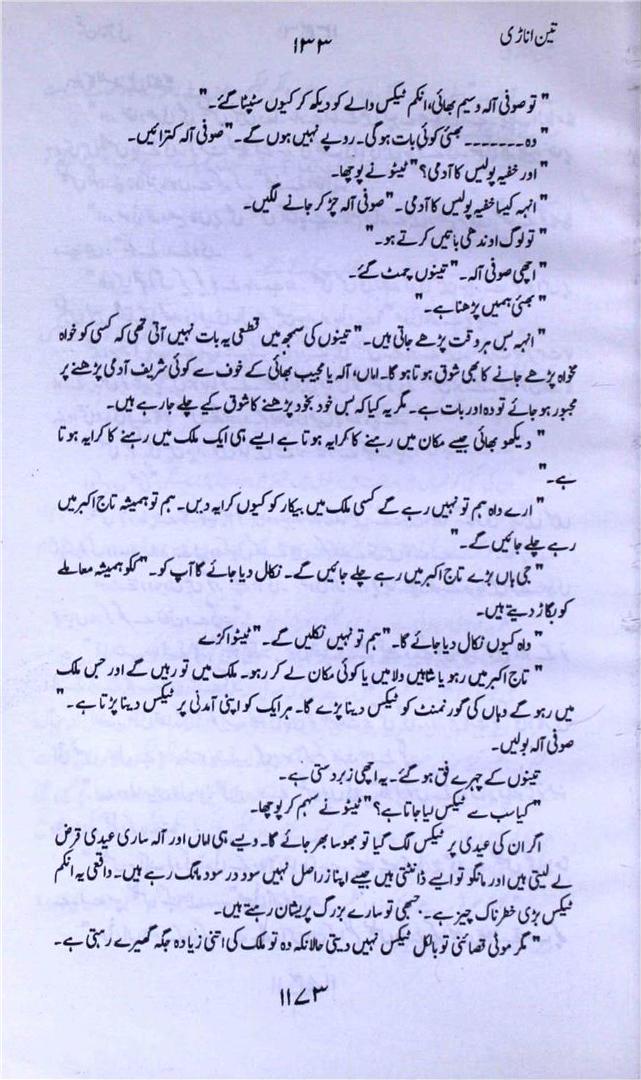 تین اناڑی
۱۳۳
" تو صوفی آلہ وسیم بھائی، انکم ٹیکس والے کو دیکھ کر کیوں سٹپٹا گئے۔"
" وہ ۔۔۔۔۔۔۔ بھئی کوئی بات ہوگی۔ روپے نہیں ہوں گے۔" صوفی آلہ کترائیں۔
" اور خفیہ پولیس کا آدمی؟" ٹیٹو نے پوچھا۔
" انہہ کیسا خفیہ پولیس کا آدمی۔" صوفی آلہ چڑ کر جانے لگیں۔
" تو لوگ اوندھی باتیں کرتے ہو۔"
" اچھی صوفی آلہ۔" تینوں چمٹ گئے۔
" بھئی ہمیں پڑھنا ہے۔"
" انہہ بس ہر وقت پڑھے جاتی ہیں۔" تینوں کی سمجھ میں قطعی یہ بات نہیں آتی تھی کہ کسی کو خواہ
مخواہ پڑھے جانے کا بھی شوق ہوتا ہوگا۔ اماں، آلہ یا مجیب بھائی کے خوف سے کوئی شریف آدمی پڑھنے پر
مجبور ہو جائے تو وہ اور بات ہے۔ مگر یہ کیا کہ بس خود بخود پڑھنے کا شوق کیے چلے جا رہے ہیں۔
" دیکھو بھائی جیسے مکان میں رہنے کا کرایہ ہوتا ہے ایسے ہی ایک ملک میں رہنے کا کرایہ ہوتا
ہے۔"
" ارے واہ ہم تو نہیں رہے گے کسی ملک میں بیکار کو کیوں کرایہ دیں۔ ہم تو ہمیشہ تاج اکبر میں
رہے چلے جائیں گے۔"
" جی ہاں بڑے تاج اکبر میں رہے چلے جائیں گے۔ نکال دیا جائے گا آپ کو۔" ککو ہمیشہ معاملے
کو بگاڑ دیتے ہیں۔
" واہ کیوں نکال دیا جائے گا۔" ہم تو نہیں نکلیں گے۔" ٹیٹو اکڑے
" تاج اکبر میں رہو یا شاہیں ولا میں یا کوئی مکان لے کر رہو۔ ملک میں تو رہیں گے اور جس ملک
میں رہو گے وہاں کی گورنمنٹ کو ٹیکس دینا پڑے گا۔ ہر ایک کو اپنی آمدنی پر ٹیکس دینا پڑتا ہے۔"
صوفی آلہ بولیں۔
تینوں کے چہرے فق ہو گئے۔ یہ اچھی زبردستی ہے۔
" کیا سب سے ٹیکس لیا جاتا ہے؟" ٹیٹو نے سہم کر پوچھا۔
اگر ان کی عیدی پر ٹیکس لگ گیا تو بھوسا بھر جائے گا۔ ویسے ہی اماں اور آلہ ساری عیدی قرض
لے لیتی ہیں اور مانگو تو ایسے ڈانٹتی ہیں جیسے اپنا زر اصل نہیں سود در سود مانگ رہے ہیں۔ واقعی یہ انکم
ٹیکس بڑی خطرناک چیز ہے۔ جبھی تو سارے بزرگ پریشان رہتے ہیں۔
" مگر موٹی قصائنی تو بالکل ٹیکس نہیں دیتی حالانکہ وہ تو ملک کی اتنی زیادہ جگہ گھیرے رہتی ہے۔
۱۱۷۳